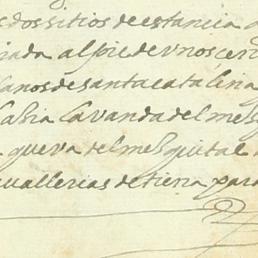 dos sitios de estancia
al pie de unos cerr
llanos de santa catalina
hasia la vanda del mes
queva del mesquital
cavallerias de tierra para